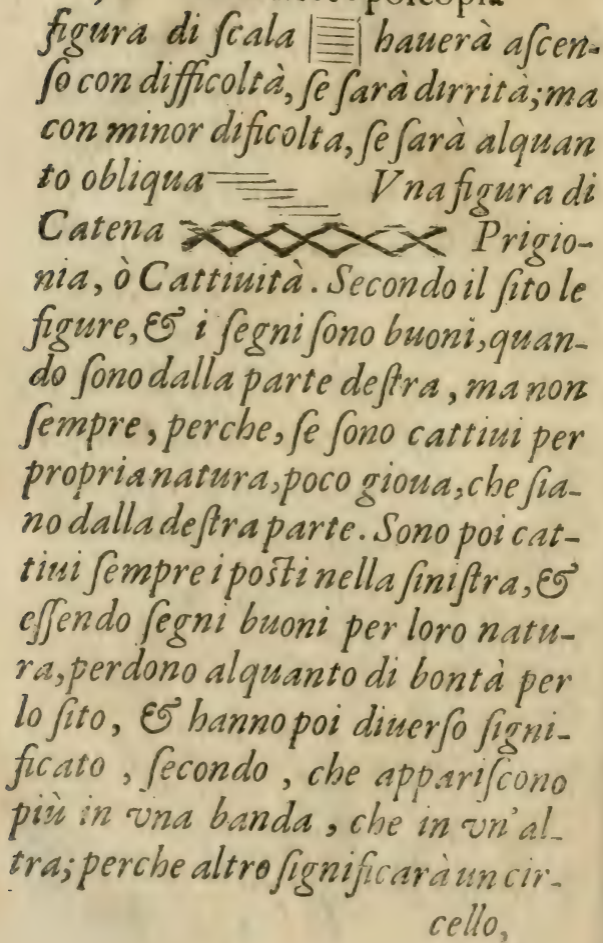 figura di ſcala hauerà aſcen-
ſo con difficoltà, ſe ſarà dirrità; ma
con minor dificolta, ſe ſarà alquan
to obliqua Vna figura di
Catena Prigio-
nia, ò Cattiuità. Secondo il ſito le
figure, & i ſegni ſono buoni, quan-
do ſono dalla parte deſtra, ma non
ſempre, perche, ſe ſono cattiui per
propria natura, poco gioua, che ſia-
no dalla deſtra parte. Sono poi cat-
tiui ſempre i poſti nella ſiniſtra, &
eſſendo ſegni buoni per loro natu-
ra, perdono alquanto di bontà per
lo ſito, & hanno poi diuerſo ſigni-
ficato, ſecondo, che appariſcono
più in vna banda, che in vn'al-
tra; perche altro ſignificarà un cir-
cello,